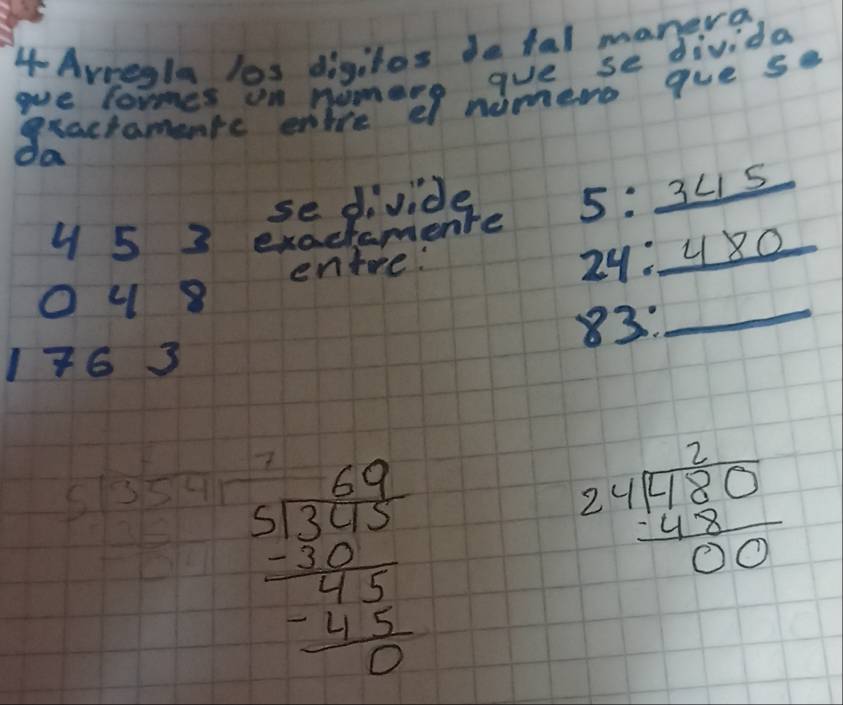 4 Arregla los digitos de tal manera
que formes un numero que se divida
exactamente entre el número que se
da
4 5 3
0 4 8
1 7 6 3
se divide
exactamente
entre:
5: 345
24: 480
83:
5 354 7
69
5 345
-30
45
-45
0
2
24 480
-48
00